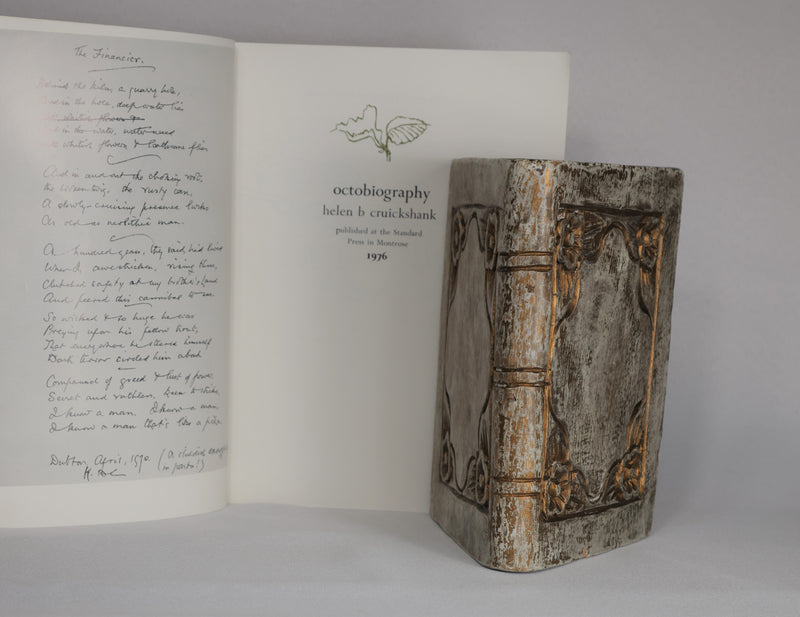 The Financier.
Behind the kilns, a quarry hole,
And in the hole, deep water lies
in the water, water-weed
white flowers &
And in and out the choking roots,
the twig, the rusty can,
A slowly-cruising presence lurks
As old as neolithic man.
A hundred years, they said, he'd lived
When I, awe-stricken, rising thus,
Clutched safety at my brother's hand
And peered this cannibal to see.
So wicked & so huge he was
Preying upon his fellow
That everywhere he steered himself
Dark terror circled him about
Compound of greed & lust of power
Secret and ruthless, keen to strike,
I know a man. I know a man
I know a man that's like a pike.
Dubton, April, 1970. (A childish
in parts!)
octobiography
helen b cruickshank
published at the Standard
Press in Montrose
1976